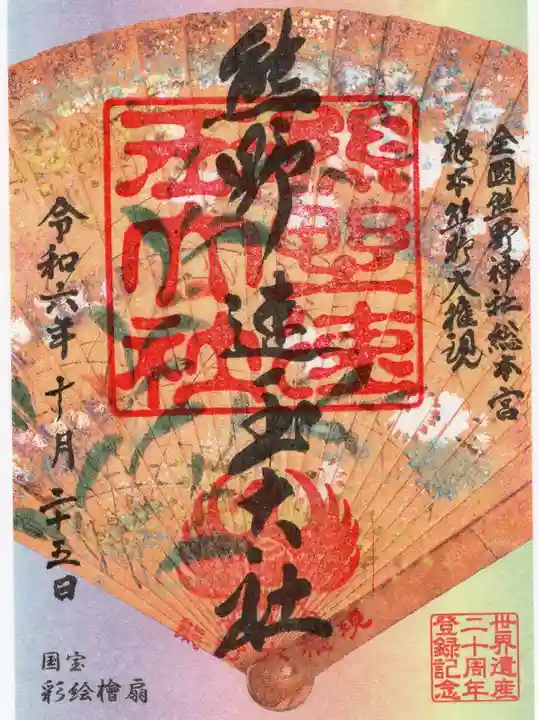 全國熊野神社総本宮
根本熊野大権現
熊野速玉大社
熊野速玉大社
令和六年十月二十五日
国宝
彩絵檜扇
世界遺産
二十周年
登録記念